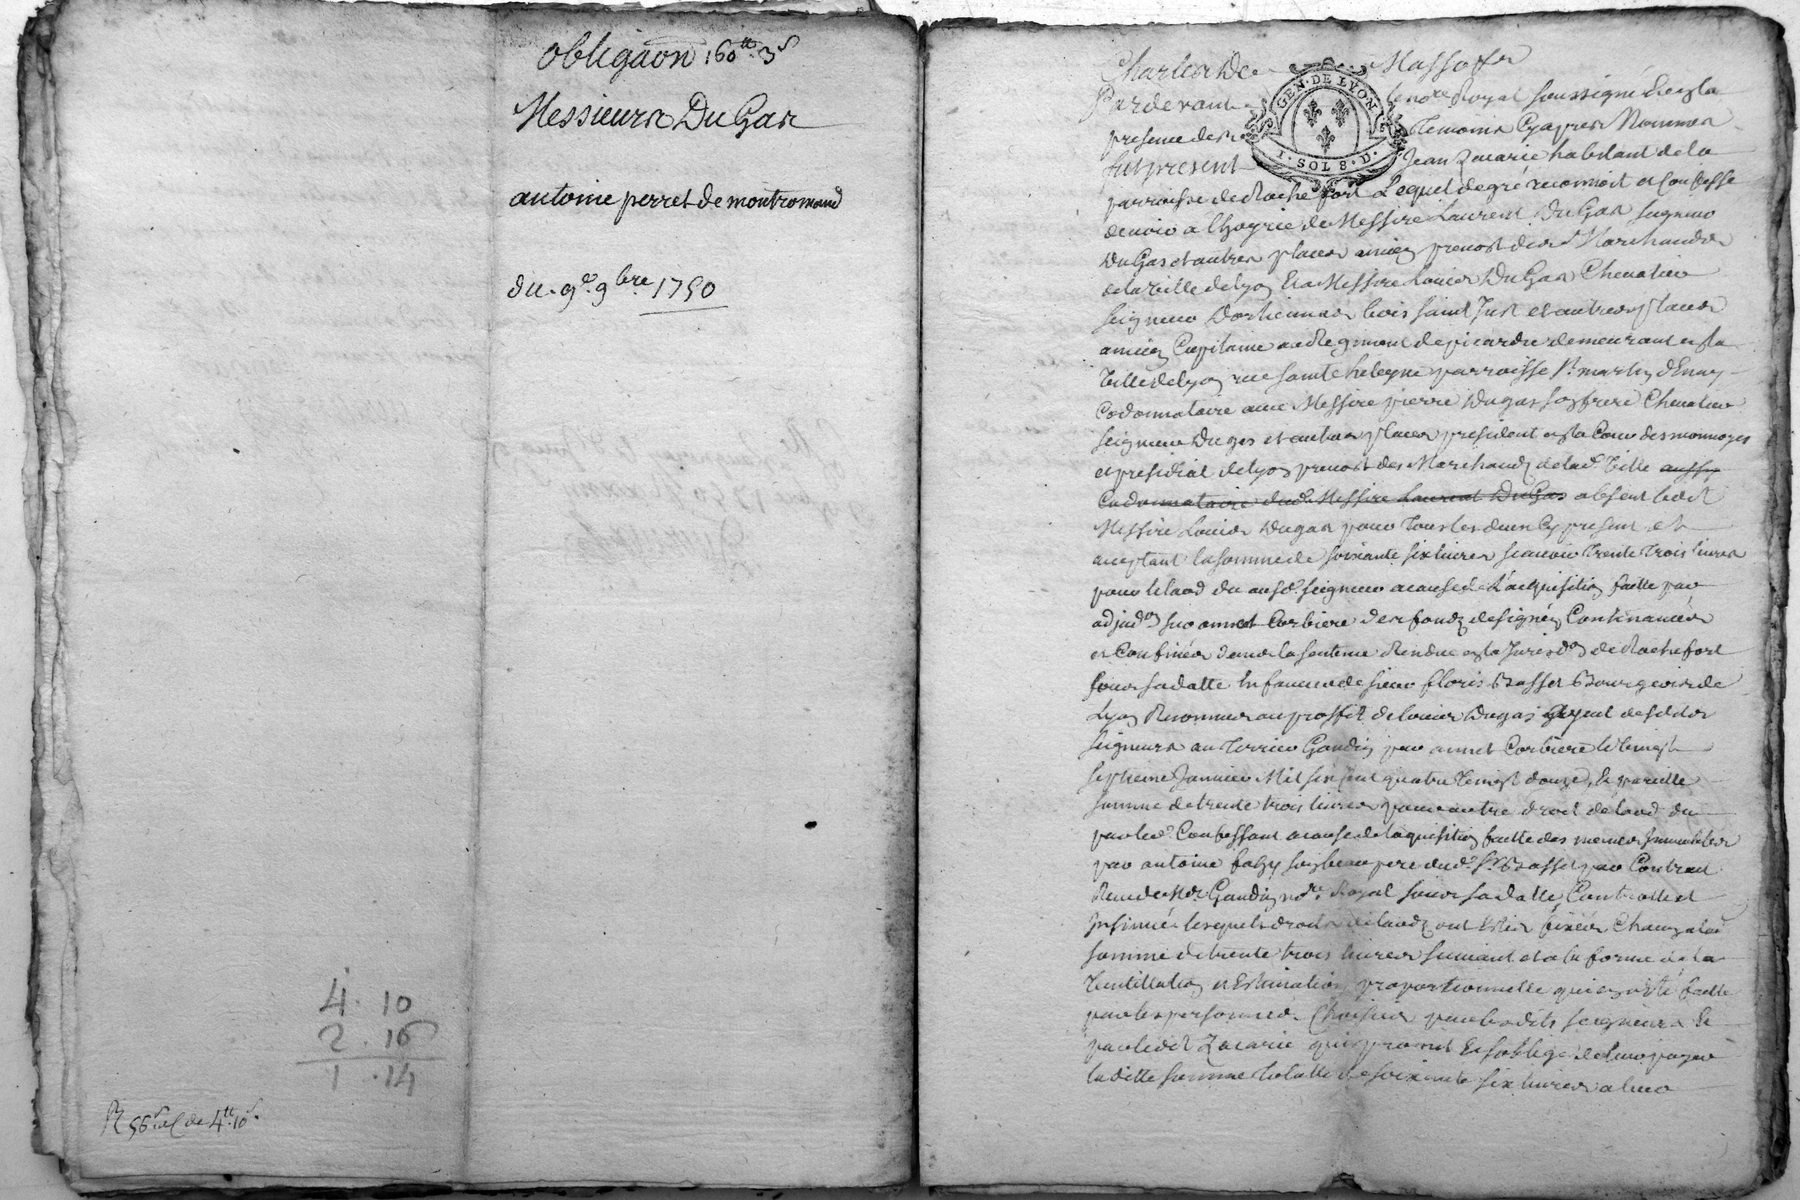 obligaon 160ₜₜ 3ˢ
Messieurs DuGas
antoine perret de montromand
du 9ᵉ 9bre 1750
4 . 10
2 . 16
1 . 14
56ˢ de 4ᵗᵗ 10ˢ
Charles De Masso
GEN · DE LYON
1 · SOL 8 · D ·
Pardevant le noʳᵉ Royal soussigné Et en la
presence des temoins Cy apres Nommes
fut present Jean Zacarie habitant de la
parroisse de Rochefort Lequel de gré reconnoit et Confesse
devoir a l'hoyrie de Messire Laurent DuGas Seigneur
DuGas et autres places ancien prevost des Marchands
de la ville de Lyon Et a Messire Louis DuGas Chevalier
Seigneur bois Saint Just et autres places
ancien Capitaine au Regiment de picardie demeurant en la
Ville de Lyon rue Sainte heleyne parroisse Sᵗ martin d'Enay
Codonnataire avec Messire pierre Dugas son frere Chevalier
Seigneur Dugas et autres places president en la Cour des monnoyes
et presidial de Lyon prevost des Marchands de lad. Ville aussy
Codonnataire dud. Messire Laurent DuGas absent ledit
Messire Louis Dugas pour Tous les deux Cy present et
acceptant la somme de soixante six livres scavoir Trente Trois livres
pour le laod du ausd. seigneurs a cause de L'acquisition faitte par
adjudᵒⁿ sur annet Corbiere des fonds designés Continancés
et Confinés dans la sentence Rendue en la Jurisdᵒⁿ de Rochefort
sous sa datte En faveur de sieur floris Basset Bourgeois de
Lyon Reconnus au proffit de louis Dugas ayeul desdits
seigneurs au Terrier Gaudin par annet Corbiere le vingt
septieme Janvier Mil six Cent quatre Vingt douze, Et pareille
somme de trente trois livres pour autre droit de laod du
par led. Confessant a cause de l'aquisition faitte des memes Immeubles
par antoine fahy son beau pere dud. Sʳ Basset par Contrat
Receu Mᵉ Gaudin noʳᵉ Royal sous sa datte Controllé et
Insinué lesquels droits de laods ont Estés fixés Chacun a lad.
somme de trente trois livres suivant et a la forme de la
Ventillation et Estimation proportionnelle qui en a été faitte
par les personnes Choisies par lesdits seigneurs Et
par ledit Zacarie qui promet Et s'oblige de leur payer
laditte somme totalle de soixante six livres a leur